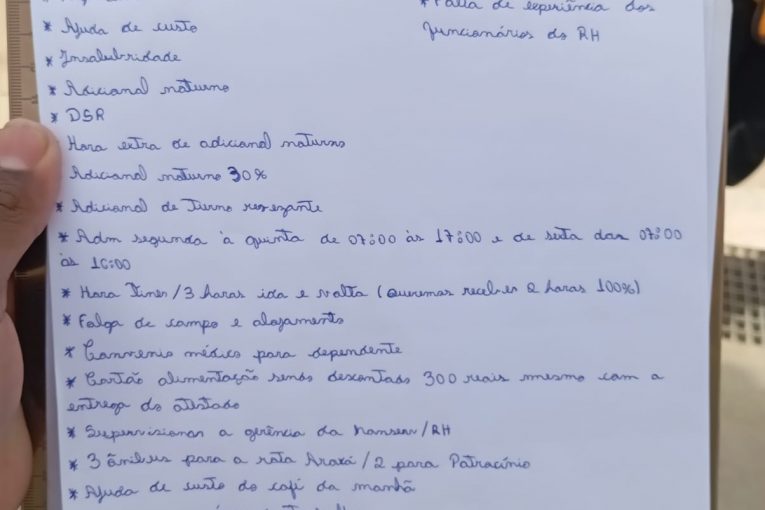 * Falta de experiência dos
* Ajuda de custo
funcionários do RH
* Insalubridade
* Adicional noturno
* DSR
Hora extra de adicional noturno
Adicional noturno 30%
* Adicional de Turno revezante
* Adm segunda à quinta de 07:00 às 17:00 e de sexta das 07:00
às 16:00
* Hora Itiner / 3 horas ida e volta (Queremos receber 2 horas 100%)
* Folga de campo e alojamento
* Convenio médico para dependente
* Cartão alimentação sendo descontado 300 reais mesmo com a
entrega do atestado
* Supervisionar a gerência da /RH
* 3 ônibus para a rota Araxá / 2 para Patrocínio
* Ajuda de custo do café da manhã